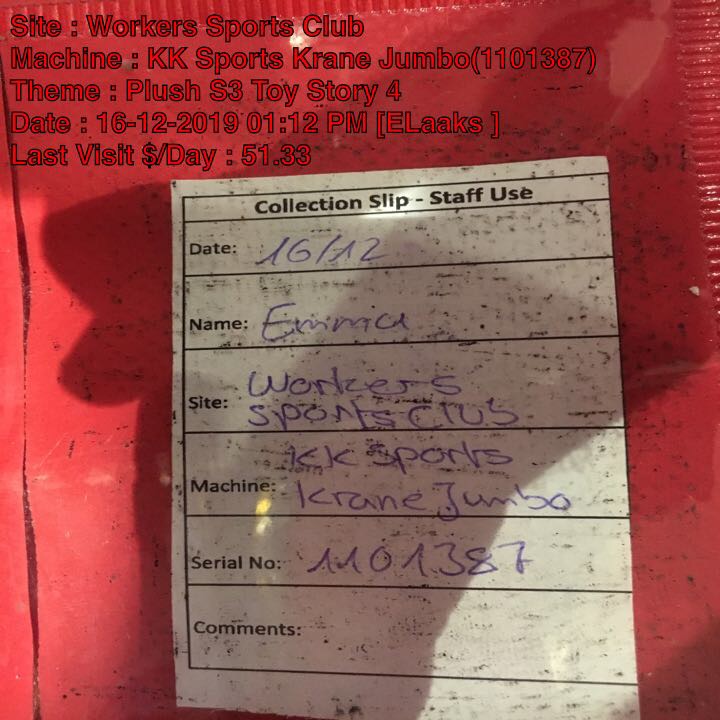 Site : Workers Sports Club
Machine : KK Sports Krane Jumbo(1101387)
Theme : Plush S3 Toy Story 4
Date : 16-12-2019 01:12 PM [ELaaks ]
Last Visit $/Day : 51.33
Collection Slip - Staff Use
Date: 16/12
Name: Emma
Site: Workers
Sports Club
KK Sports
Machine: Krane Jumbo
Serial No: 1101387
Comments: